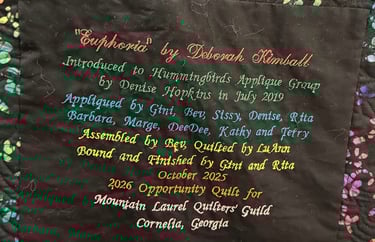 "Euphoria" by Deborah Kimball
Introduced to Hummingbirds Applique Group
by Denise Hopkins in July 2019
Appliqued by Gini, Bev, Sissy, Denise, Rita
Barbara, Marge, DeeDee, Kathy and Jerry
Assembled by Bev, Quilted by LuAnn
Bound and Finished by Gini and Rita
October 2025
2026 Opportunity Quilt for
Mountain Laurel Quilters' Guild
Cornelia, Georgia